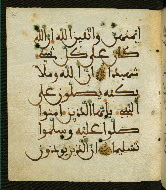 أيمنهن واتقين الله إن الله
كان على كل شىء
شهيدا إن الله وملا
ئكته يصلون على
النبى يأيها الذين ءامنوا
صلوا عليه وسلموا
تسليما إن الذين يؤذون